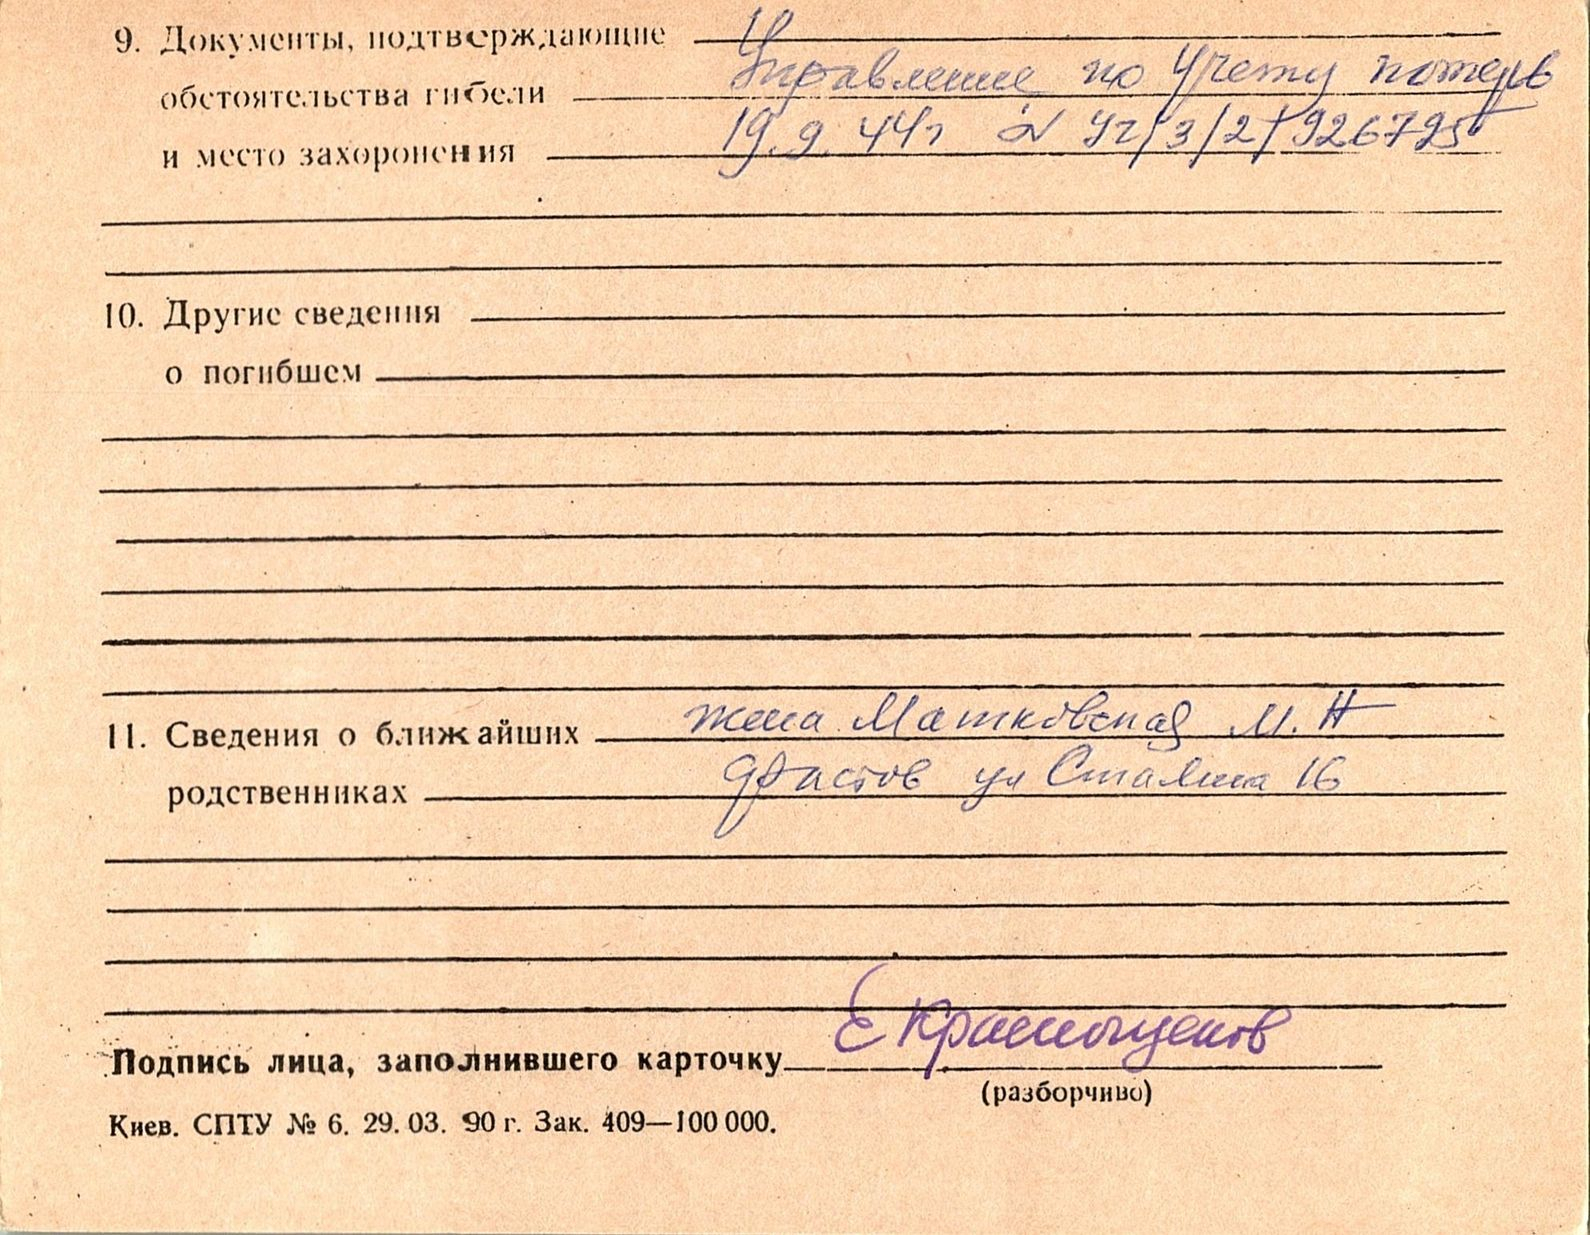 9. Документы, подтверждающие
обстоятельства гибели Управление по учету потерь
и место захоронения 19.9.44г № Уч/3/2/926795
10. Другие сведения
о погибшем
11. Сведения о ближайших жена Матковская М. Н
родственниках Фастов ул Сталина 16
Подпись лица, заполнившего карточку Е Краснощеков
(разборчиво)
Киев. СПТУ № 6. 29. 03. 90 г. Зак. 409—100 000.